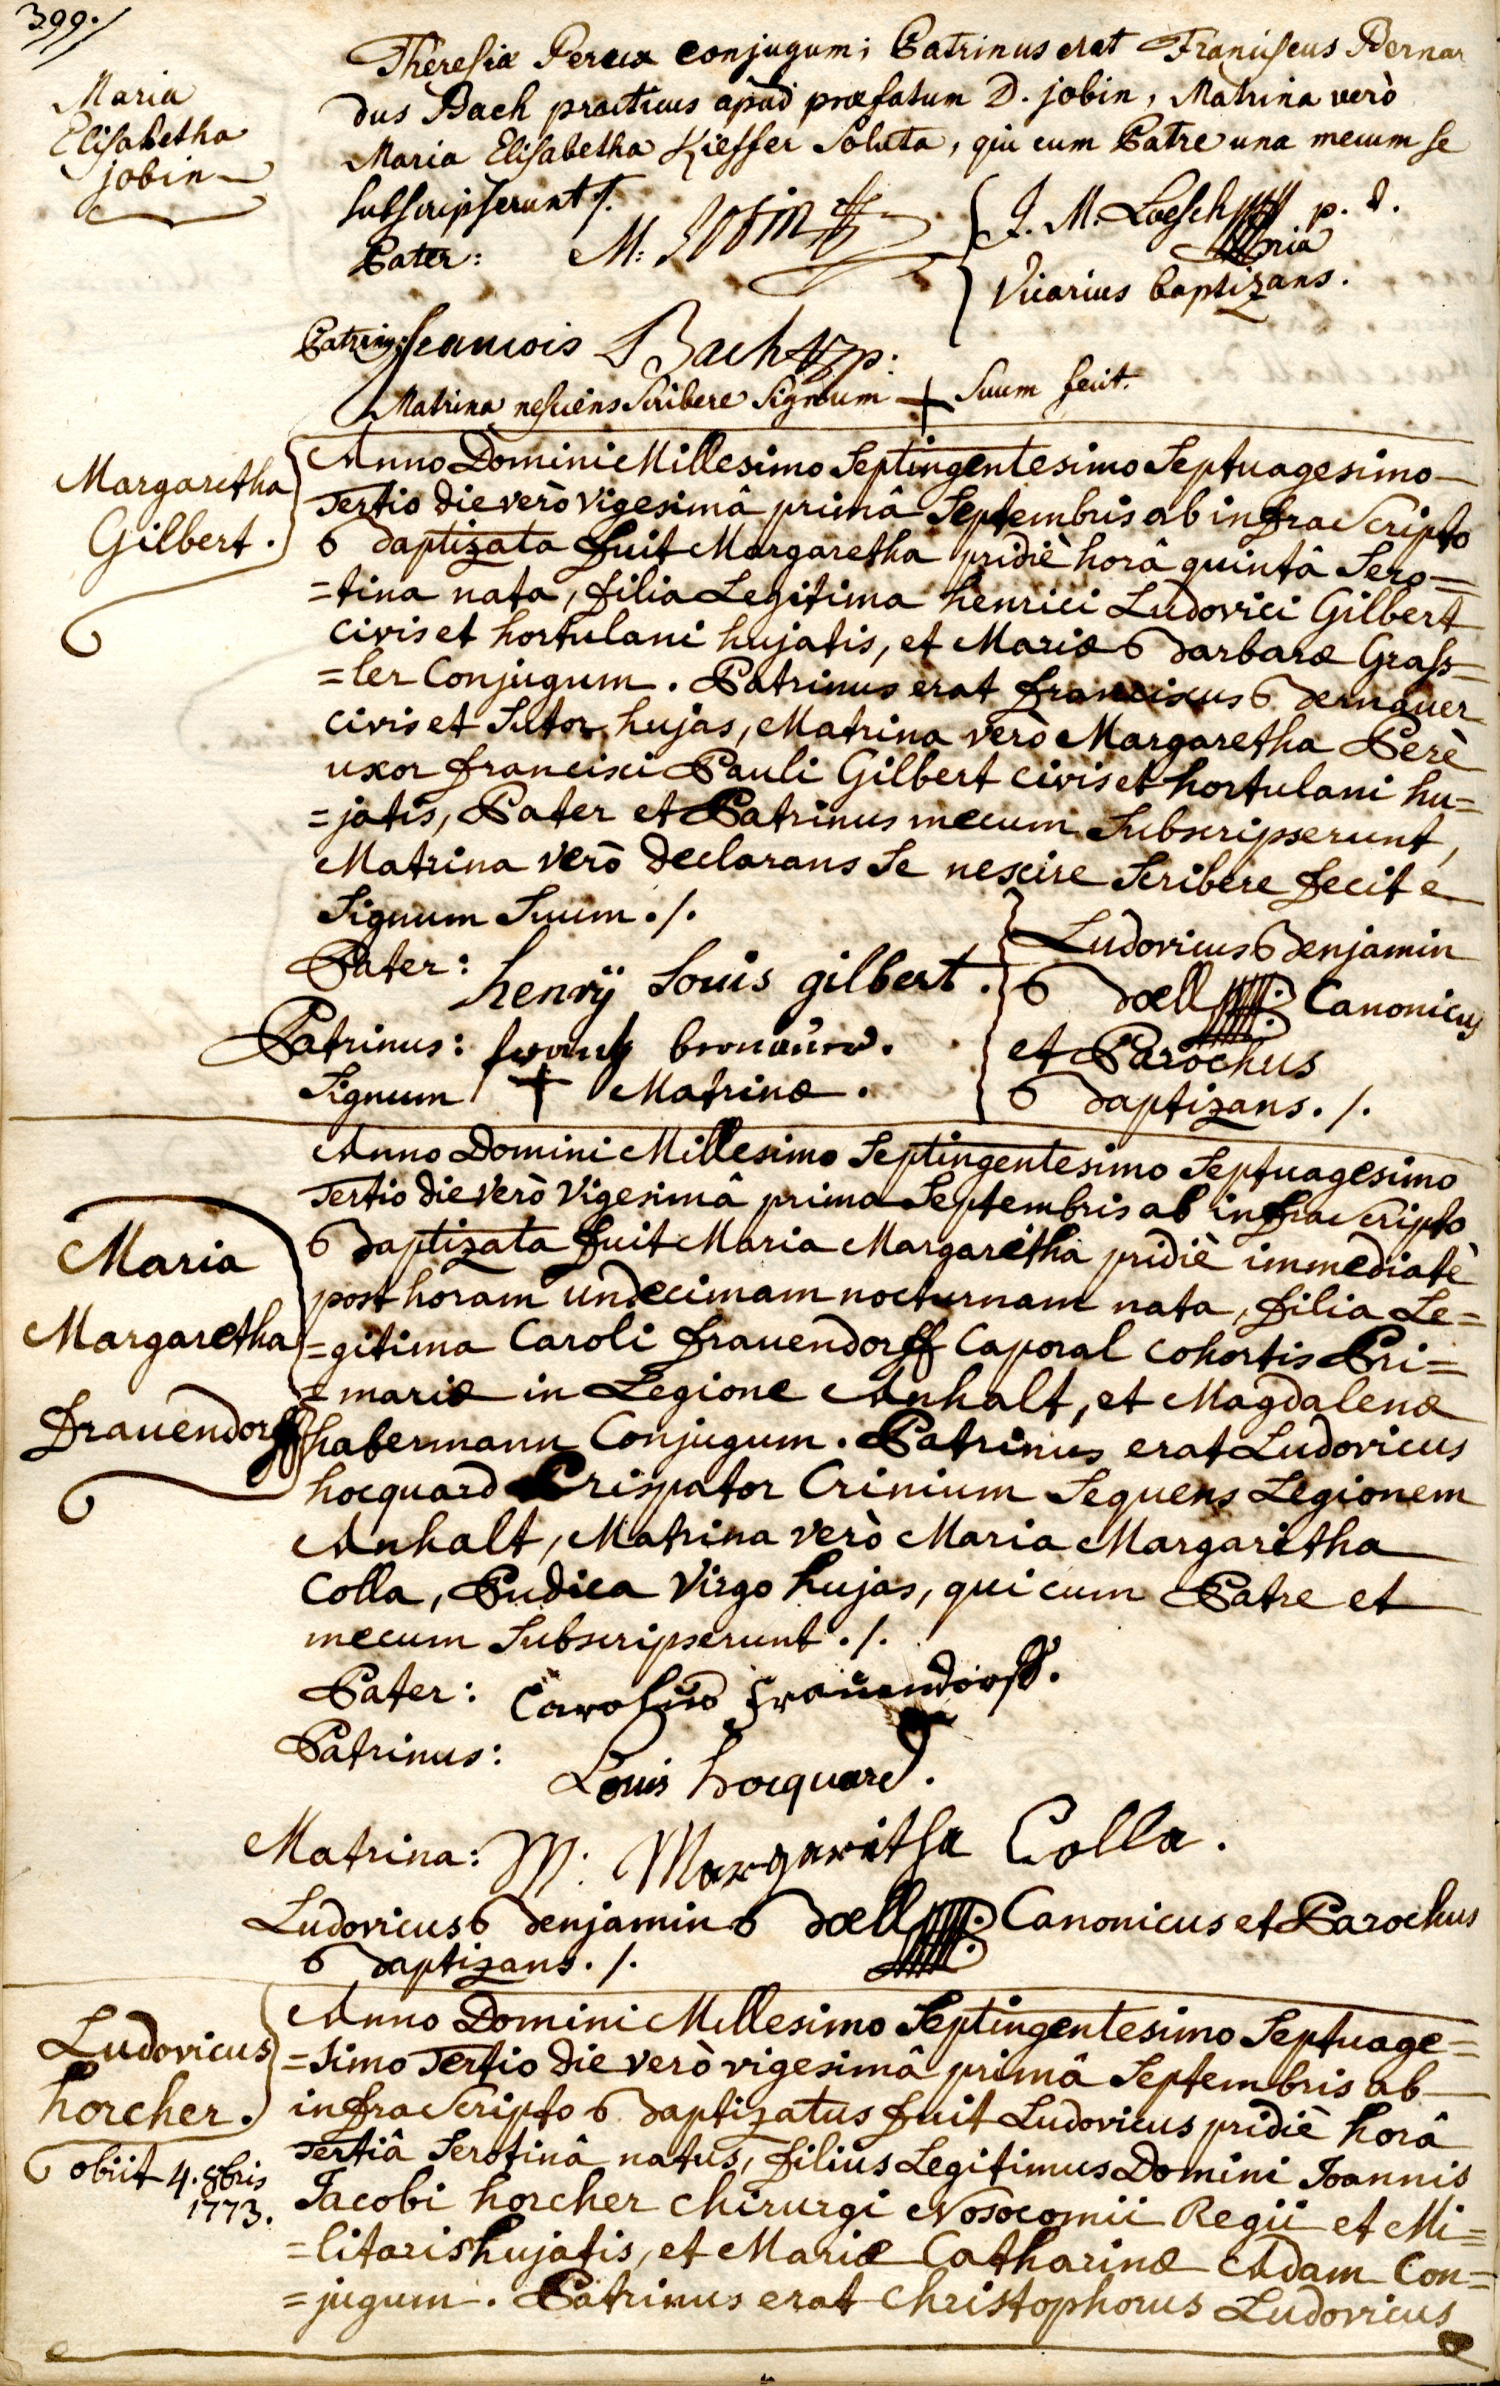 399./
Maria
Elisabetha
jobin
Theresiæ Perua conjugum; Patrinus erat Franciscus Bernar
dus Bach practicus apud præfatum D. jobin, Matrina verò
Maria Elisabetha Kieffer Soluta, qui cum Patre una mecum se
subscripserunt ./.
Pater: M: Jobin
J. M. Loesch p. t.
Vicarius baptizans.
Patrinus francois Bach
Matrina nesciens scribere signum + suum fecit.
Margaretha
Gilbert.
Anno Domini Millesimo Septingentesimo Septuagesimo
Tertio die verò vigesimâ primâ Septembris ab infra scripto
Baptizata fuit Margaretha pridiè horâ quintâ Sero=
=tina nata, filia Legitima henrici Ludovici Gilbert
civis et hortulani hujatis, et Mariæ Barbaræ Grass=
=ler Conjugum. Patrinus erat franciscus Bernauer
civis et Sutor hujas, Matrina verò Margaretha Perè
uxor francisci Pauli Gilbert civis et hortulani hu=
=jatis, Pater et Patrinus mecum Subscripserunt,
Matrina verò declarans Se nescire Scribere fecit
Signum Suum ./.
Pater: henrÿ Louis gilbert.
Patrinus: frantz bernauer.
Signum + Matrinæ.
Ludovicus Benjamin
Bœll Canonicus
et Parochus
Baptizans ./.
Maria
Margaretha
Frauendorff
Anno Domini Millesimo Septingentesimo Septuagesimo
Tertio die verò Vigesimâ prima Septembris ab infra scripto
Baptizata fuit Maria Margaretha pridiè immediatè
post horam undecimam nocturnam nata, filia Le=
=gitima Caroli frauendorff Caporal cohortis Pri=
=mariæ in Legione Anhalt, et Magdalenæ
habermann Conjugum. Patrinus erat Ludovicus
hocquard Crispator Crinium Sequens Legionem
Anhalt, Matrina verò Maria Margaritha
Colla, Pudica Virgo hujas, qui cum Patre et
mecum Subscripserunt ./.
Pater: Carolus Frauendorff.
Patrinus: Louis hocquard.
Matrina: M: Margaritha Colla.
Ludovicus Benjamin Bœll Canonicus et Parochus
Baptizans ./.
Ludovicus
horcher.
obiit 4. 8bris
1773.
Anno Domini Millesimo Septingentesimo Septuage=
=simo Tertio die verò vigesimâ primâ Septembris ab
infra scripto Baptizatus fuit Ludovicus pridiè horâ
Tertiâ Serotinâ natus, filius Legitimus Domini Joannis
Jacobi horcher chirurgi Nosocomii Regii et Mi=
=litaris hujatis, et Mariæ Catharinæ Adam Con=
=jugum. Patrinus erat Christophorus Ludovicus